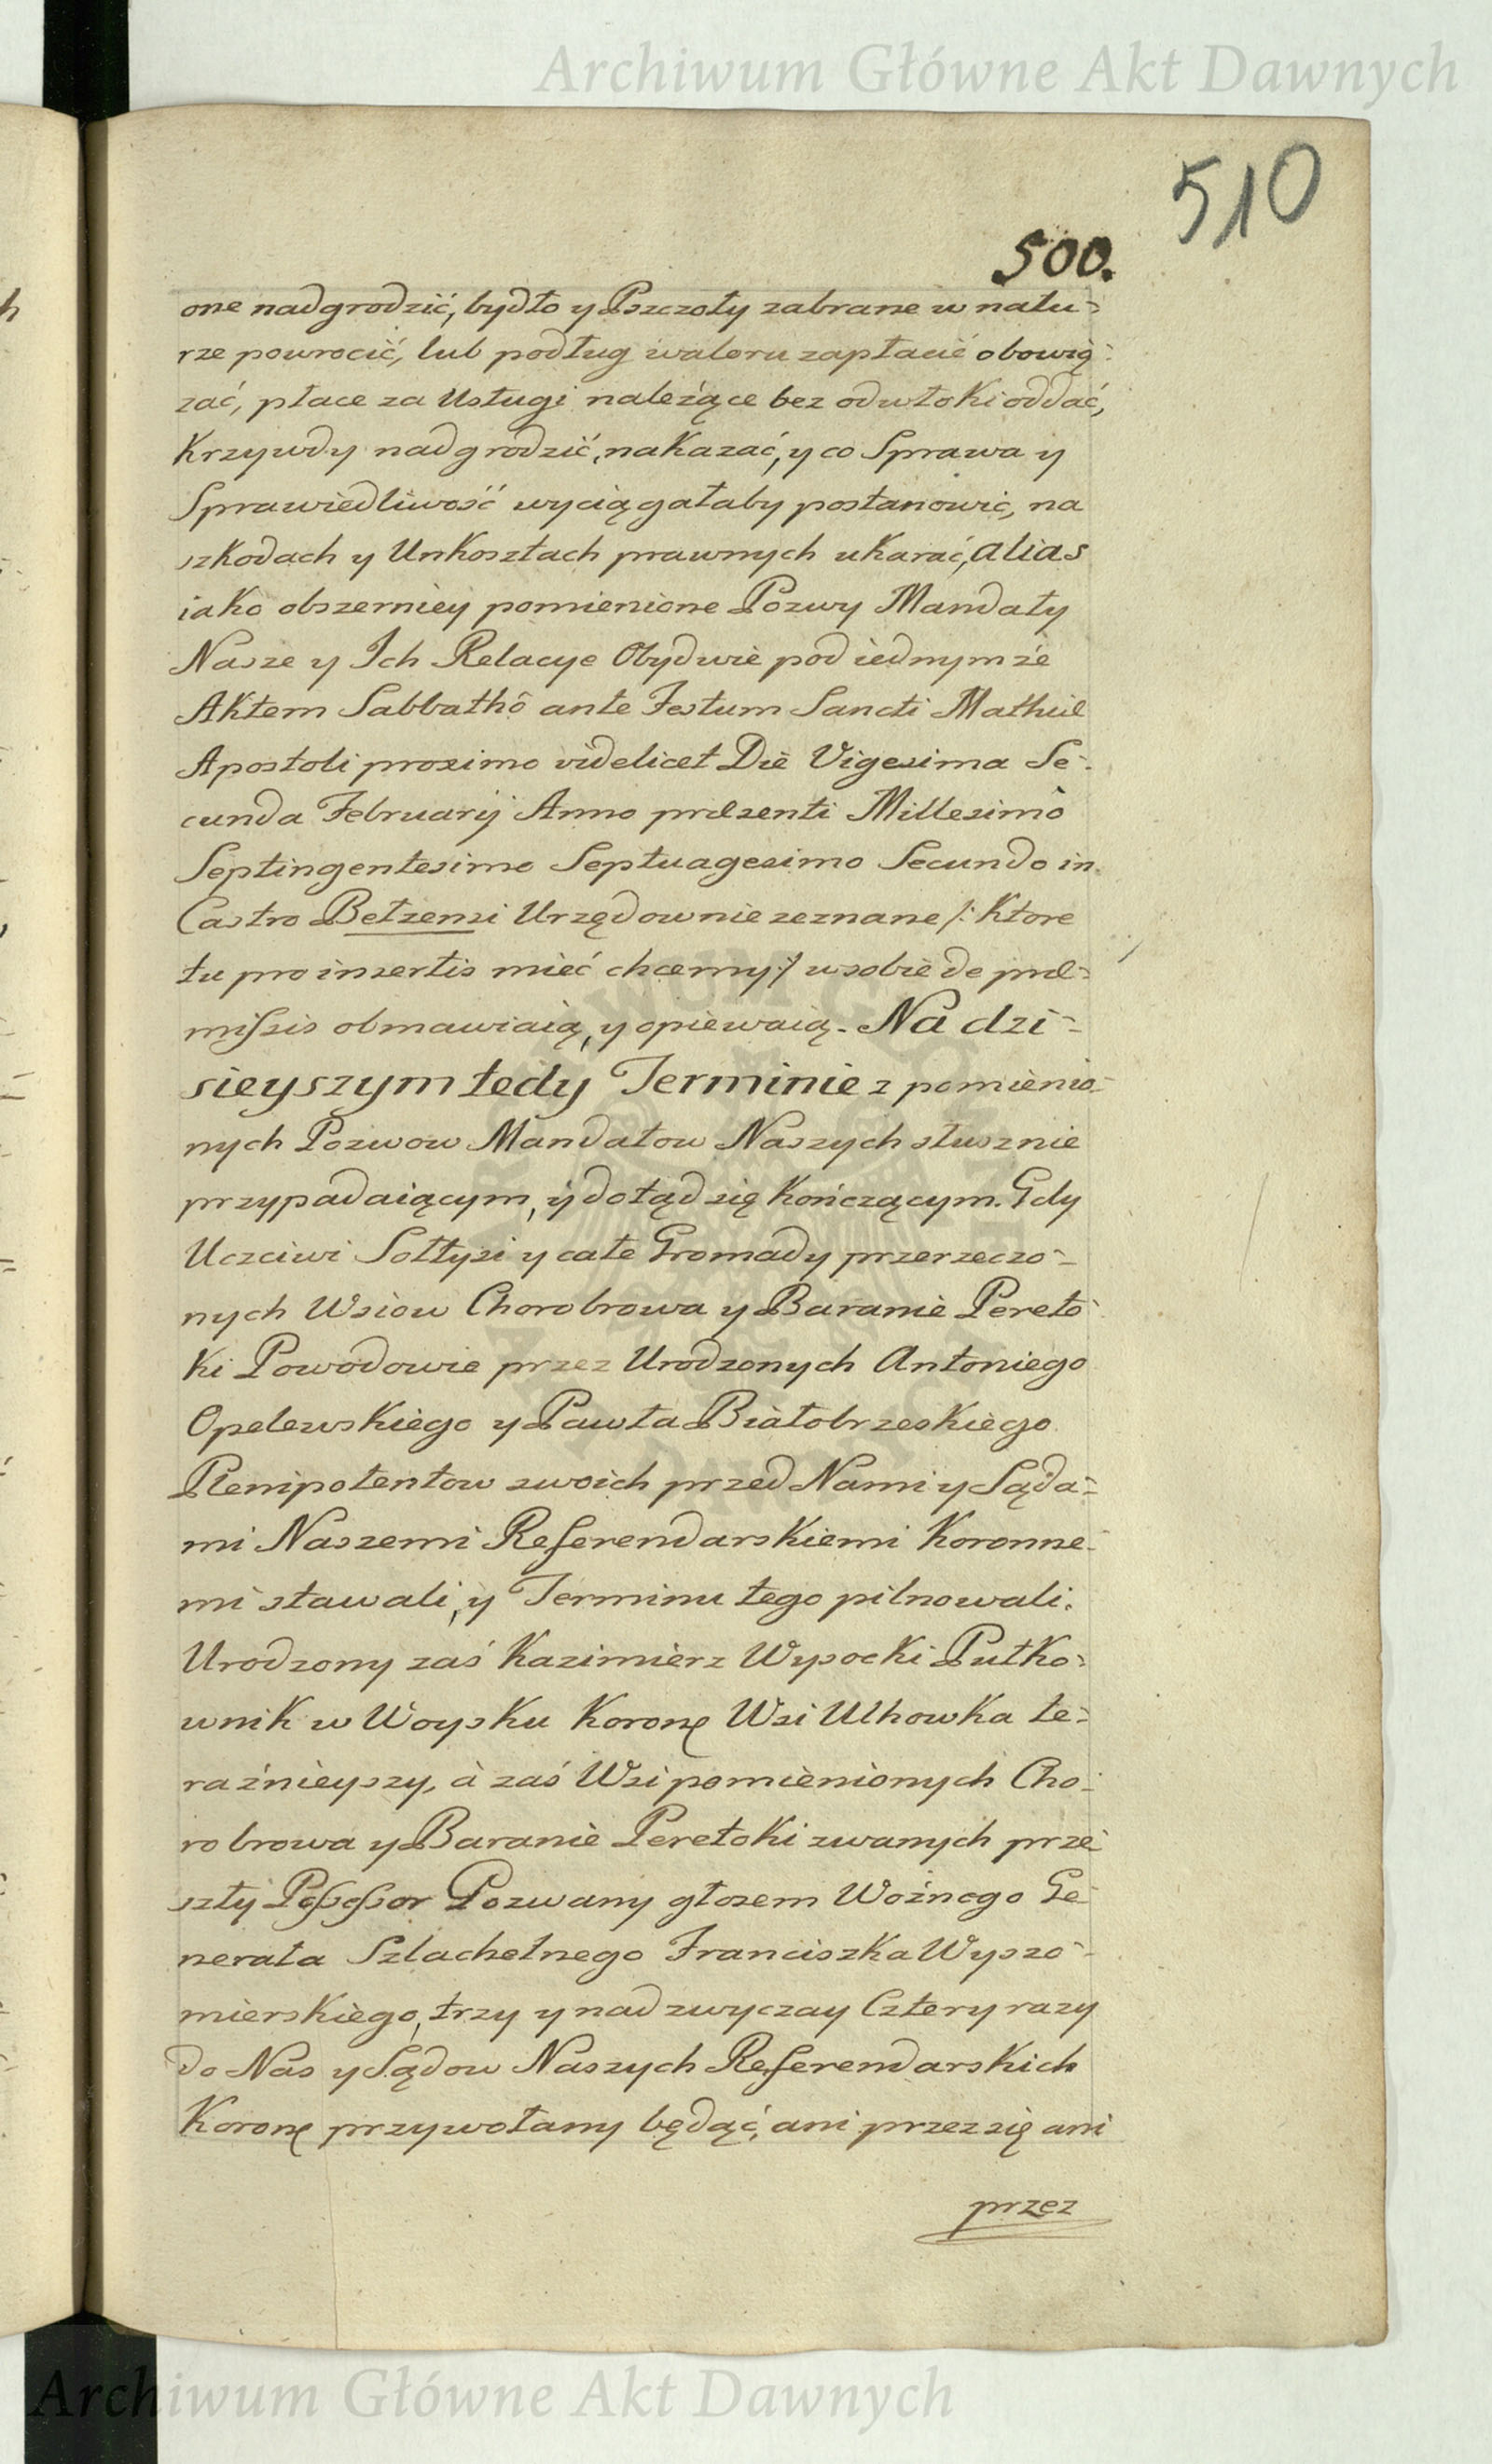 Archiwum Główne Akt Dawnych
510
500.
one nadgrodzić, bydło y Pszczoły zabrane w natu-
rze powrocić, lub podług waloru zapłacić obowią-
zać, płace za Usługi należące bez odwłoki oddać,
Krzywdy nadgrodzić, nakazać, y co Sprawa y
Sprawiedliwość wyciągałaby postanowić, na
szkodach y Unkosztach prawnych ukarać, alias
iako obszerniey pomienione Pozwy Mandaty
Nasze y Ich Relacye Obydwie pod iednymże
Aktem Sabbathô ante Festum Sancti Mathiæ
Apostoli proximo videlicet Die Vigesima Se-
cunda Februarij Anno præsenti Millesimô
Septingentesimo Septuagesimo Secundo in
Castro Bełzensi Urzędownie zeznane /: Ktore
tu pro insertis mieć chcemy :/ w sobie de præ-
missis obmawiaią, y opiewaią. Na dzi-
sieyszym tedy Terminie z pomienio-
nych Pozwow Mandatow Naszych słusznie
przypadaiącym, y dotąd się kończącym. Gdy
Uczciwi Sołtysi y całe Gromady przerzeczo-
nych Wsiow Chorobrowa y Baranie Pereto-
ki Powodowie przez Urodzonych Antoniego
Opelewskiego y Pawła Białobrzeskiego
Plenipotentow swoich przed Nami y Sąda-
mi Naszemi Referendarskiemi Koronne-
mi stawali, y Terminu tego pilnowali.
Urodzony zaś Kazimierz Wysocki Pułko-
wnik w Woysku Koronę Wsi Uhowka te-
raźnieyszy, à zaś Wsi pomienionych Cho-
robrowa y Baranie Peretoki zwanych prze-
szły Possessor Pozwany głosem Woźnego Ge-
nerała Szlachetnego Franciszka Wyszo-
mierskiego, trzy y nad zwyczay Cztery razy
do Nas y Sądow Naszych Referendarskich
Koronę przywołany będąć, ani przez się ani
przez
Archiwum Główne Akt Dawnych